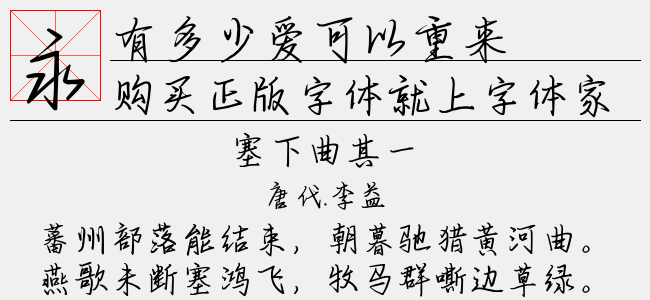 永
有多少爱可以重来
购买正版字体就上字体家
塞下曲其一
唐代.李益
蕃州部落能结束，朝暮驰猎黄河曲。
燕歌未断塞鸿飞，牧马群嘶边草绿。